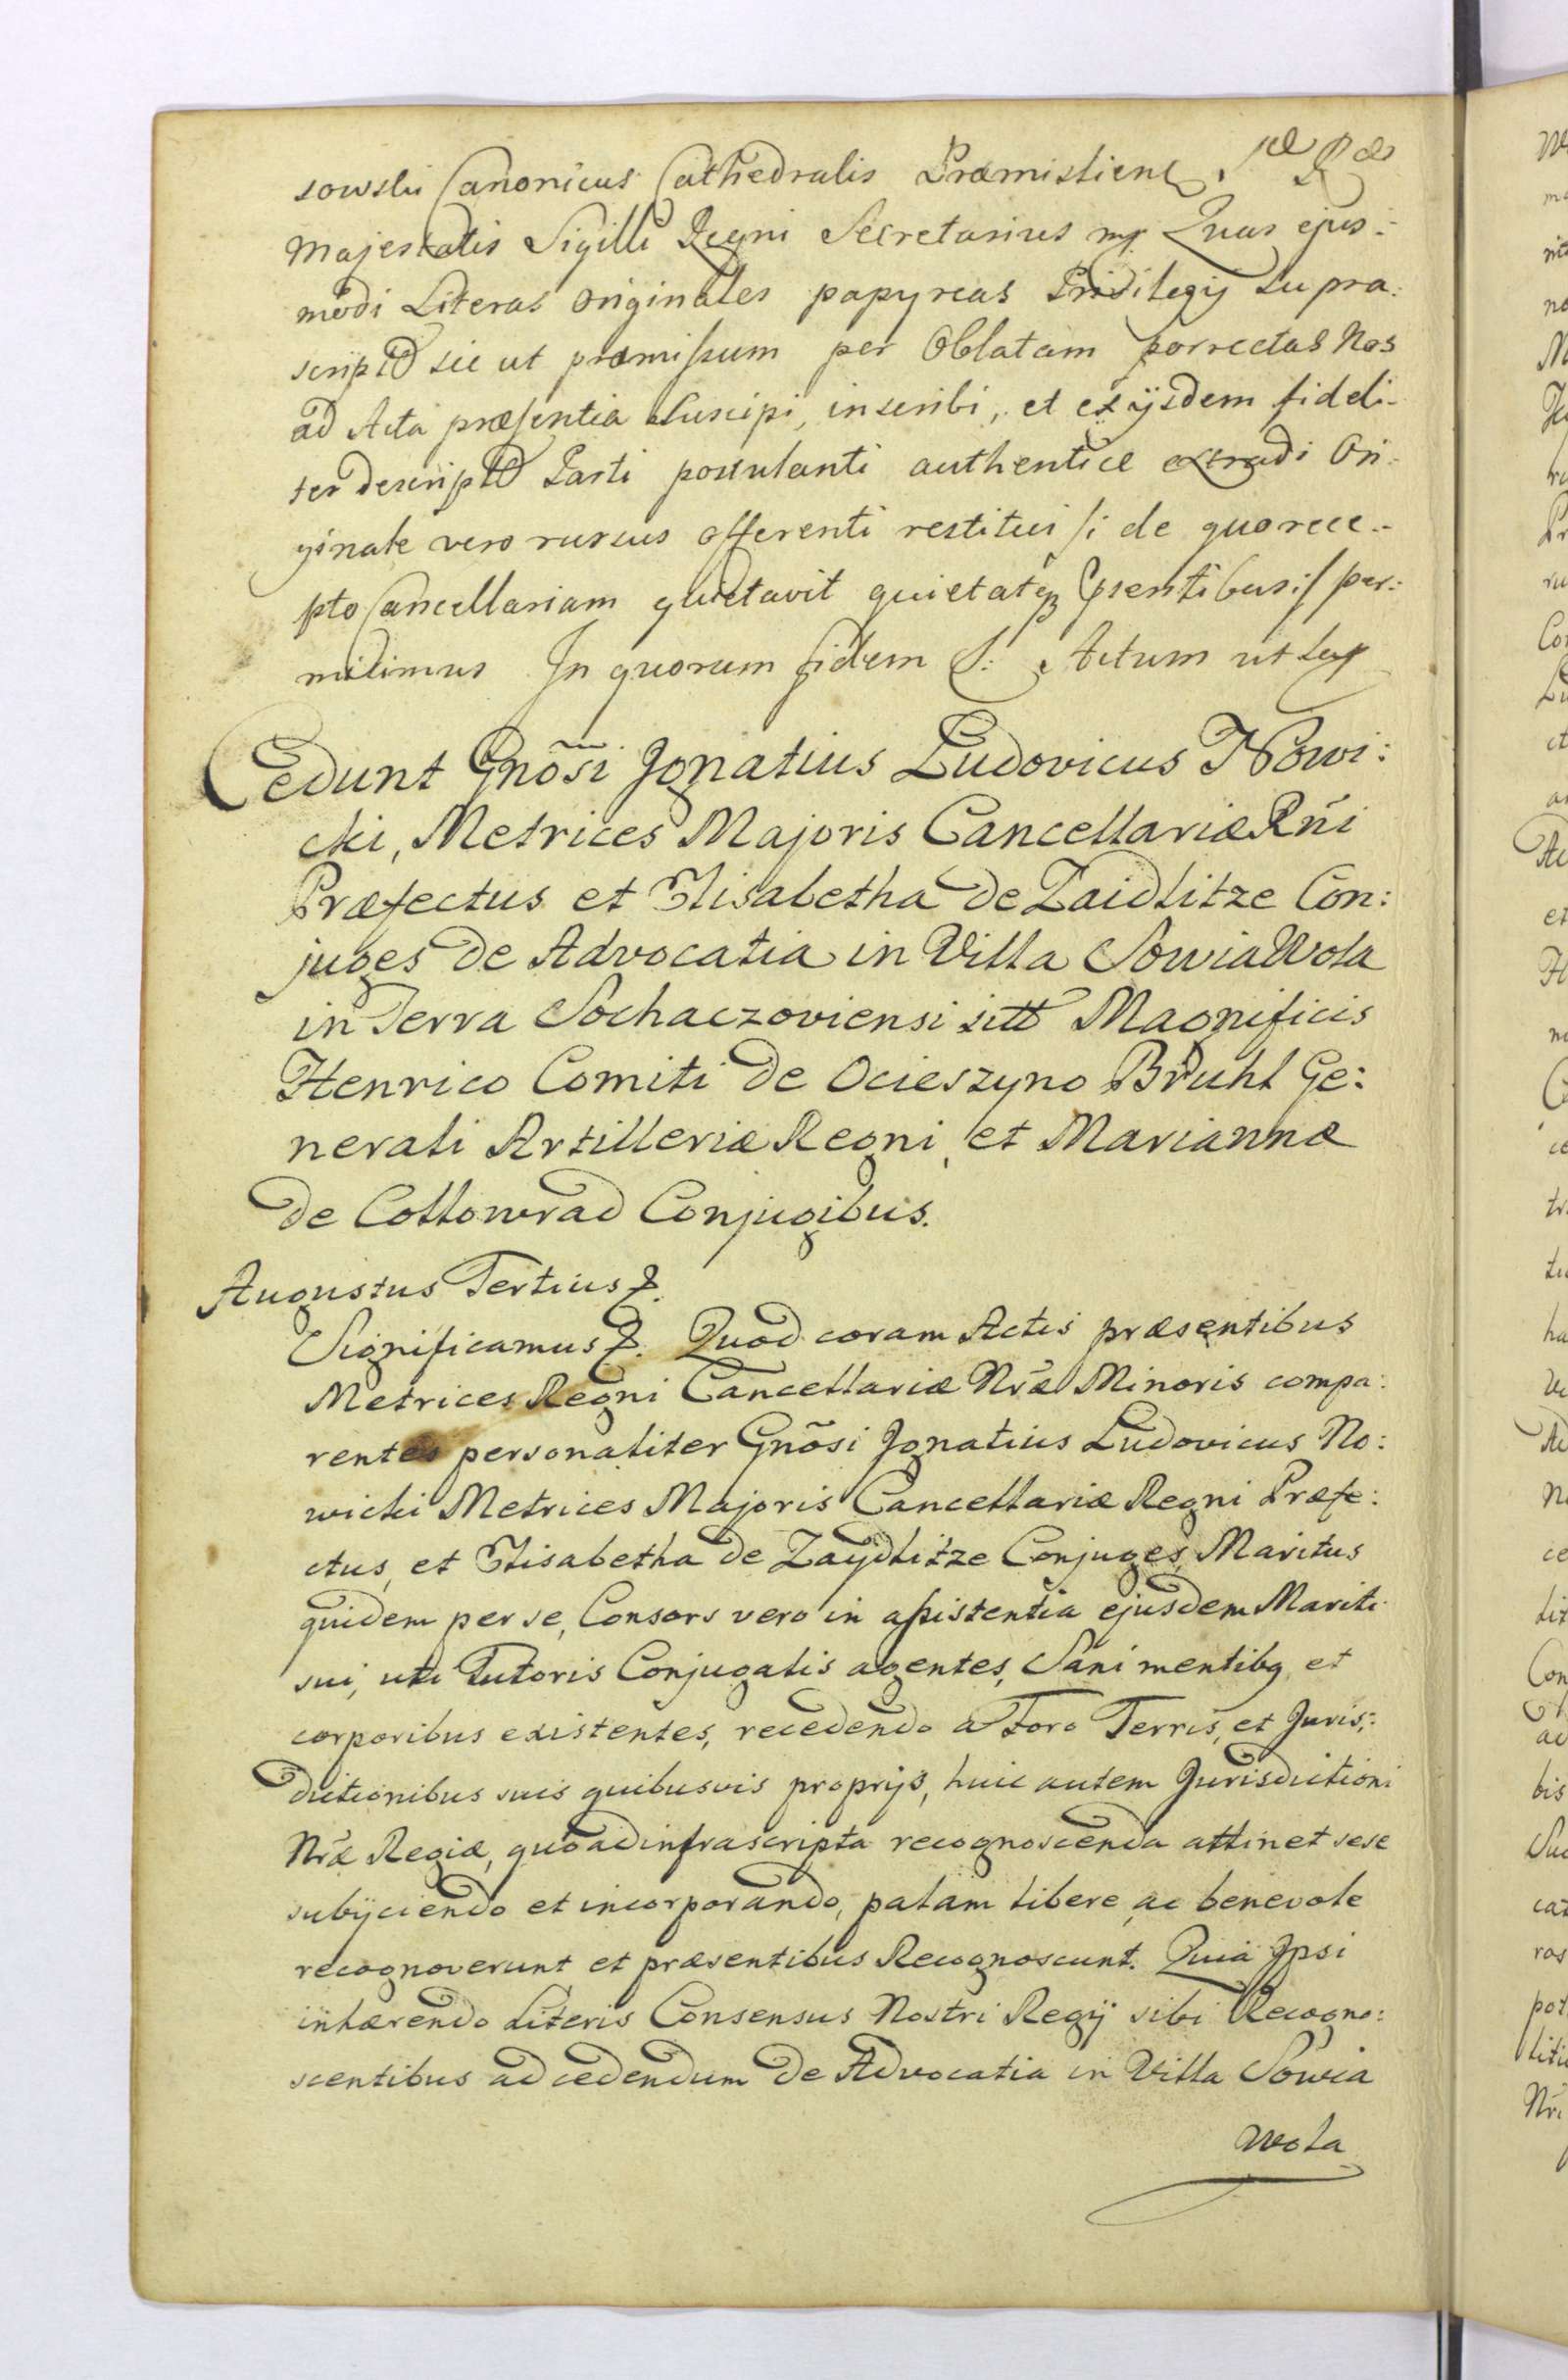 sowski Canonicus Cathedralis Præmislien S͠cæ Ræ
Majestatis Sigilli Regni Secretarius mp Quas ejus:
modi Literas Originales papyreas Privilegij supra:
scriptt sic ut præmissum per Oblatam porrectas Nos
ad Acta præsentia suscipi, inscribi, et ex ijsdem fideli:
ter descriptt Parti postulanti authentice extradi Ori:
ginale vero rursus offerenti restitui /: de quo rece:
pto Cancellariam quietavit quietatq pñsentibus :/ per:
mittimus In quorum fidem &: Actum ut sup
Cedunt Gnõsi Ignatius Ludovicus Nowi:
cki, Metrices Majoris Cancellariæ Rñi
Præfectus et Elisabetha de Zaidlitze Con:
juges de Advocatia in Villa Sowia Wola
in Terra Sochaczoviensi sitt Magnificis
Henrico Comiti de Ocieszyno Bruhl Ge:
nerali Artilleriæ Regni, et Mariannæ
de Collowrad Conjugibus.
Augustus Tertius &.
Significamus &. Quod coram Actis præsentibus
Metrices Regni Cancellariæ Nræ Minoris compa:
rentes personaliter Gnõsi Ignatius Ludovicus No:
wicki Metrices Majoris Cancellariæ Regni Præfe:
ctus, et Elisabetha de Zaydlitze Conjuges, Maritus
quidem per se, Consors vero in assistentia ejusdem Mariti
sui, uti Tutoris Conjugalis agentes, Sani mentibq et
corporibus existentes, recedendo a Foro Terris, et Juris:
dictionibus suis quibusvis proprijs, huic autem Jurisdictioni
Nræ Regiæ, quo ad infrascripta recognoscenda attinet sese
subijciendo et incorporando, palam libere ac benevole
recognoverunt et præsentibus Recognoscunt. Quia Ipsi
inhærendo Literis Consensus Nostri Regij sibi Recogno:
scentibus ad cedendum de Advocatia in Villa Sowia
Wola